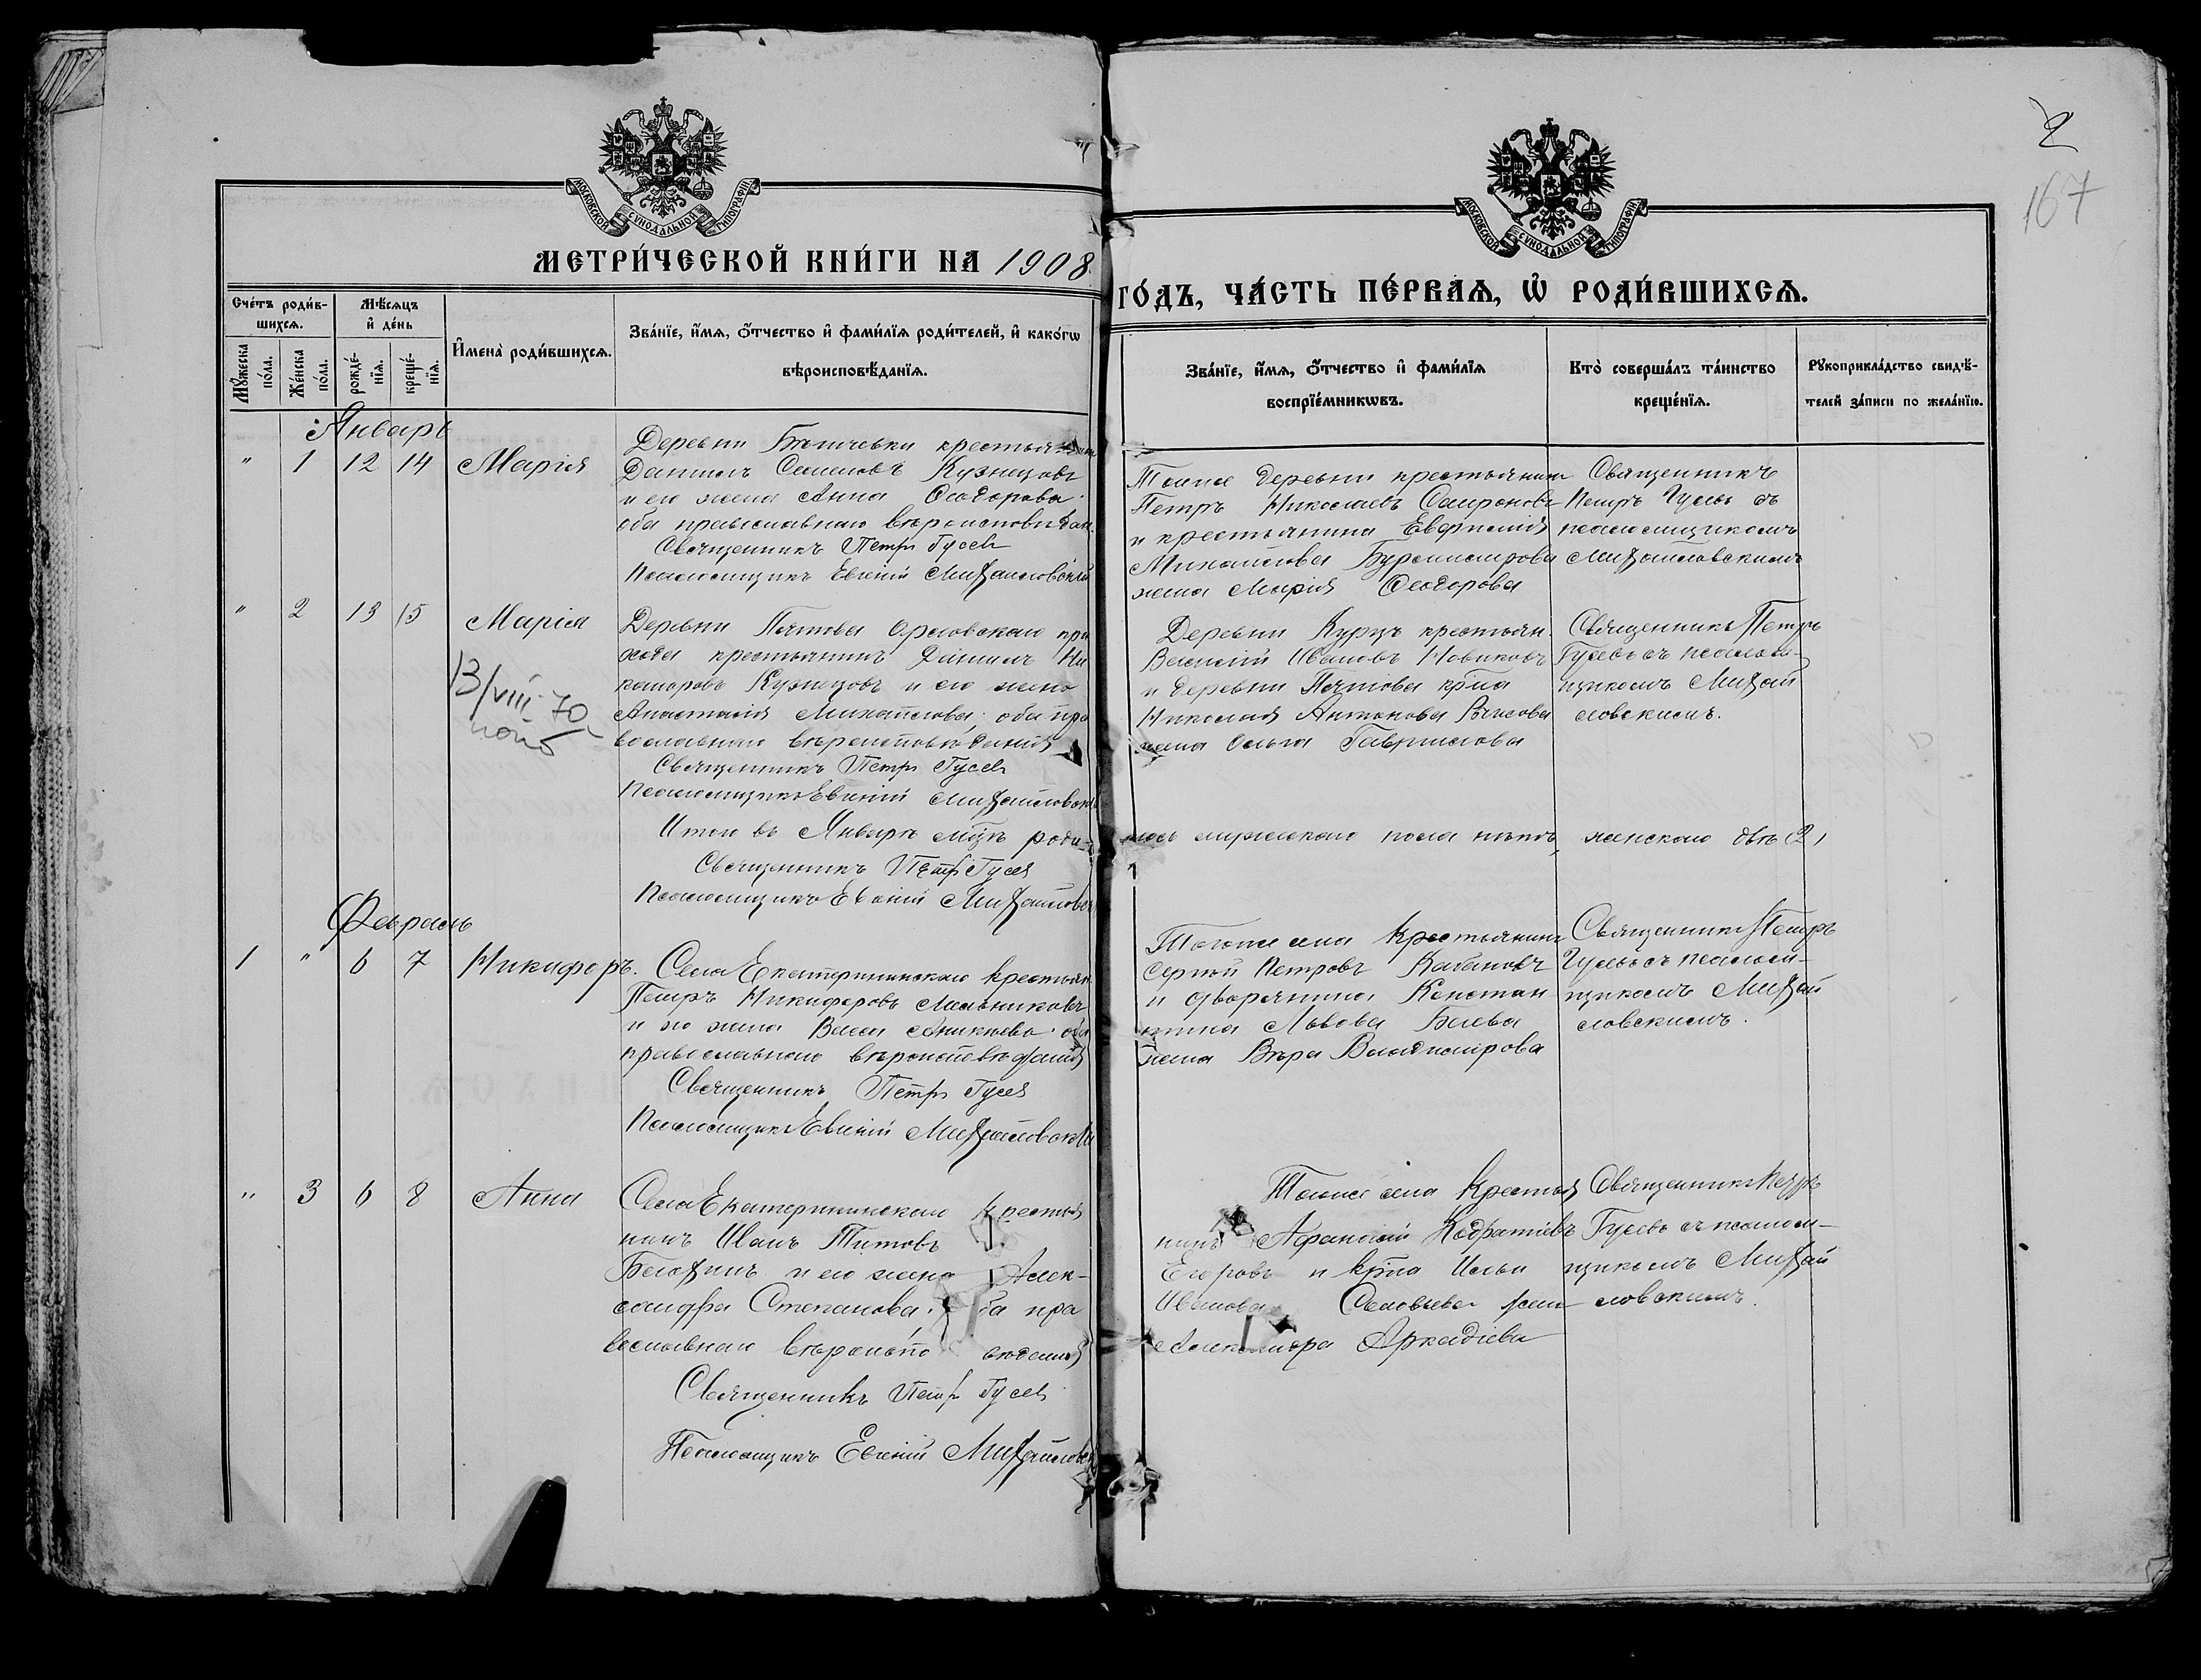 2
167
МОСКОВСКОЙ СѴНОДАЛЬНОЙ ТИПОГРАФІИ
МОСКОВСКОЙ СѴНОДАЛЬНОЙ ТИПОГРАФІИ
МЕТРИ́ЧЕСКОЙ КНИ́ГИ НА 1908
ГО́ДЪ, ЧА́СТЬ ПЕ́РВАѦ, Ѡ҆ РОДИ́ВШИХСѦ.
Сче́тъ роди́в-
шихсѧ.
Мꙋ́жеска
по́ла.
Же́нска
по́ла.
Мѣ́сѧцъ
и҆ де́нь
рожде́-
нїѧ.
креще́-
нїѧ.
И҆мена̀ роди́вшихсѧ.
Зва́нїе, и҆́мѧ, ѻ҆́тчество и҆ фами́лїѧ роди́телей, и҆ како́гѡ
вѣроисповѣ́данїѧ.
Зва́нїе, и҆́мѧ, ѻ҆́тчество и҆ фами́лїѧ
воспрїе́мникѡвъ.
Кто̀ соверша́лъ та́инство
креще́нїѧ.
Рꙋкоприкла́дство свидѣ́-
телей за́писи по жела́нїю.
Январь
" 1 12 14 Марія
Деревни крестьянинъ
Даниилъ Семеновъ Кузнецовъ
и его жена Анна Ѳеодорова
оба православнаго вѣроисповѣдан.
Священникъ Петръ Гусевъ
Псаломщикъ Евгеній Михайловскій
Тойже деревни крестьянинъ
Петръ Николаевъ Сафроновъ
и крестьянина Евфимія
Михайлова Бурмистрова
жена Марія Ѳеодорова
Священникъ
Петръ Гусевъ съ
псаломщикомъ
Михайловскимъ
" 2 13 15 Марія
13/VIII 70
Деревни Пятова Орловскаго при
хода крестьянинъ Даниилъ Ни
каноровъ Кузнецовъ и его жена
Анастасія Михайлова; оба пра
вославнаго вѣроисповѣданія
Священникъ Петръ Гусевъ
Псаломщикъ Евгеній Михайловскій
Деревни Курцъ крестьян.
Василій Ивановъ Новиковъ
и деревни Пятова кр-на
Николая Антонова
жена Ольга Гаврилова
Священникъ Петръ
Гусевъ съ псалом-
щикомъ Михай
ловскимъ.
Итого въ Январѣ мцѣ роди-
лось мужескаго пола нѣтъ, женскаго двѣ (2)
Священникъ Петръ Гусевъ
Псаломщикъ Евгеній Михайловск
Февраль
1 " 6 7 Никифоръ.
Села Екатерининскаго крестьян.
Петръ Никифоровъ Мельниковъ
и его жена Васса Аникіева; оба
православнаго вѣроисповѣданія
Священникъ Петръ Гусевъ
Псаломщикъ Евгеній Михайловскій
Тогоже села крестьянинъ
Сергѣй Петровъ Кабановъ
и дворянина Констан
тина Львова Баева
жена Вѣра Владимірова
Священникъ Петръ
Гусевъ съ псалом-
щикомъ Михай
ловскимъ.
" 3 6 8 Анна
Села Екатерининскаго крестья
нинъ Иванъ Титовъ
и его жена Алек-
сандра Степанова; оба пра
вославнаго вѣроиспо вѣданія
Священникъ Петръ Гусевъ
Псаломщикъ Евгеній Михайловск
Тогоже села крестья
нинъ Афанасій Кодратіевъ
Егоровъ и кр-на Ильи
Иванова Соловьева жена
Александра Аркадіева
Священникъ Петръ
Гусевъ съ псалом-
щикомъ Михай
ловскимъ.